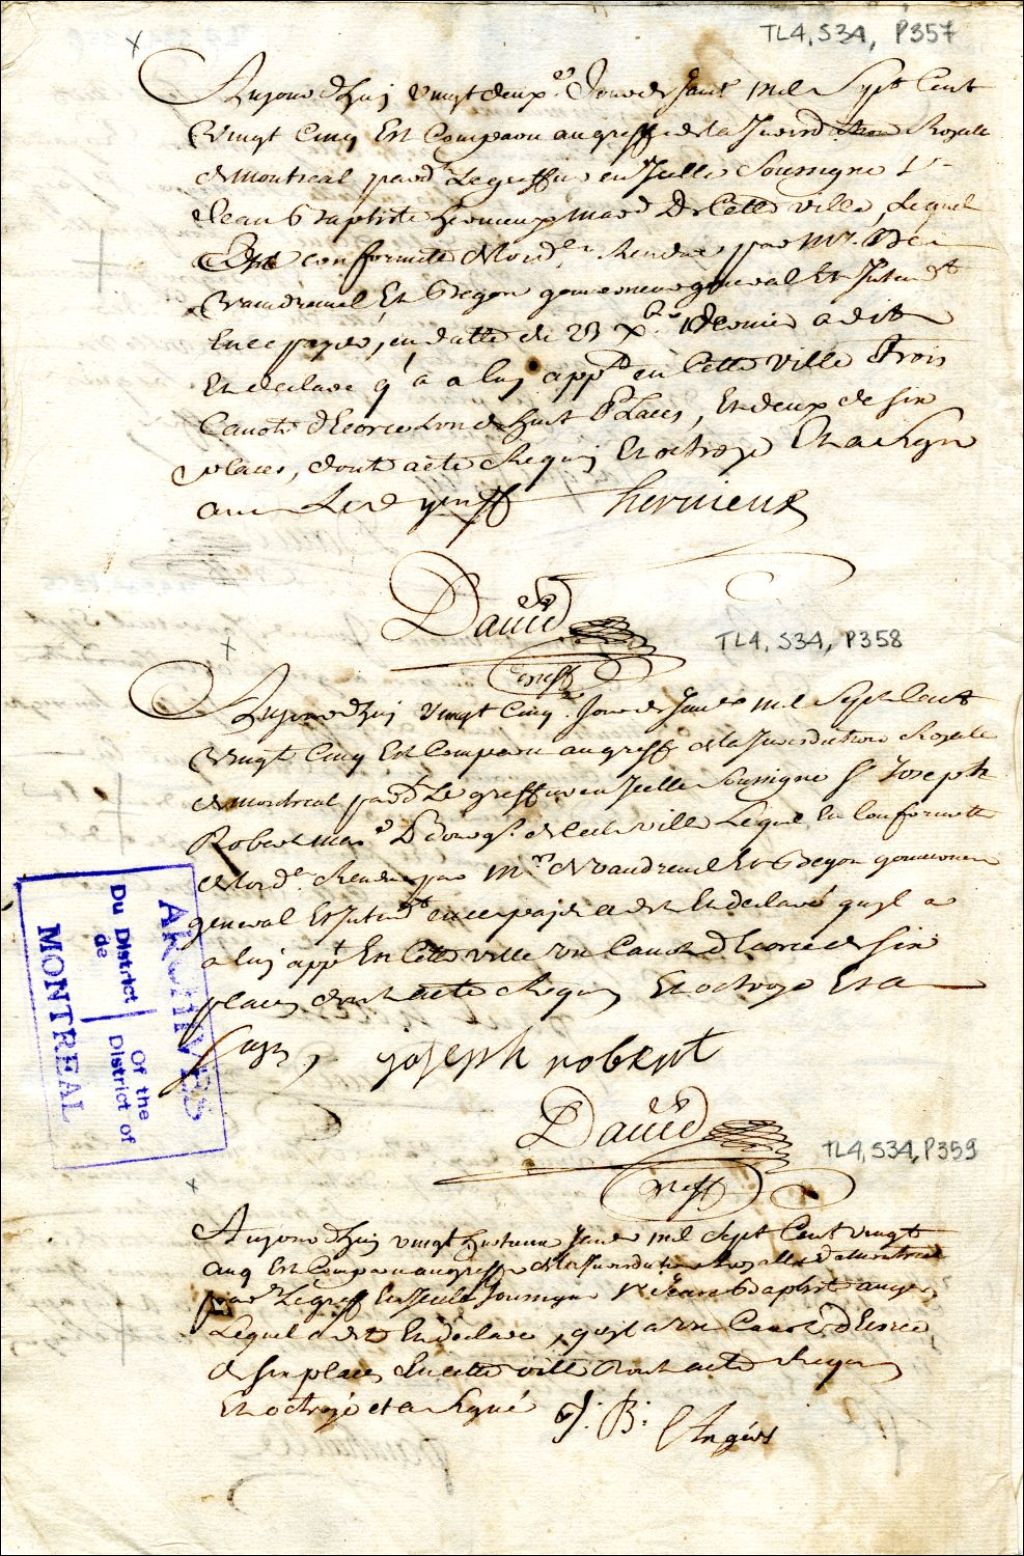 TL4, S34, P357
Aujourd'huy vingt deux.e Jour de Janv.r mil Sept Cent
Vingt Cinq Est Comparu au greffe de la Jurisdiction Royalle
de Montreal pard.t Le greffier en Icelle Soussigné S.r
Jean Baptiste hervieux mar.d De Cette ville, Lequel
conformité de lord.ce Rendue par Mrs. De
Vaudreuil Et Begon gouverneur general Et Intend.t
En ce payis, en datte du 23 X.bre Dernier a dit
Et declaré q'. a a luy app.t en Cette Ville Trois
Canots d'Ecorce un de huit Places, Et deux de six
places, dont acte Requis Et octroyé Et a signé
avec Led. greff
hervieux
David
greff
TL4, S34, P358
Aujourd'huy Vingt Cinq.e Jour de Janv.er mil Sept Cent
Vingt Cinq Est Comparu au greffe de la Jurisdiction Royalle
de montreal pard.t Le greffier en Icelle Soussigné S.r Joseph
Robert mar.d Bourg.s de Cette ville Lequel En Conformité
de lord.ce Rendue par M.rs de Vaudreuil Et Begon gouverneur
general Et Intend.t en ce payis a dit Et declaré quyl a
a luy app.t En Cette ville un Canot d'Ecorce de six
places dont acte Requis Et octroyé Et a
signé,
joseph robert
David
greff
ARCHIVES
Du District
de
Of the
District of
MONTREAL
TL4, S34, P359
Aujourd'huy vingt huitieme Janvier mil Sept Cent vingt
Cinq Est Comparu au greffe de la Jurisdiction Royalle de Montreal
pard.t Le greff En Icelle Soussigné S.r Jean Baptiste anger
Lequel a dit Et declaré, quyl a un Canot d'Ecorce
de six places En cette ville Dont acte Requis
Et octroyé et a signé
J: B: Angers